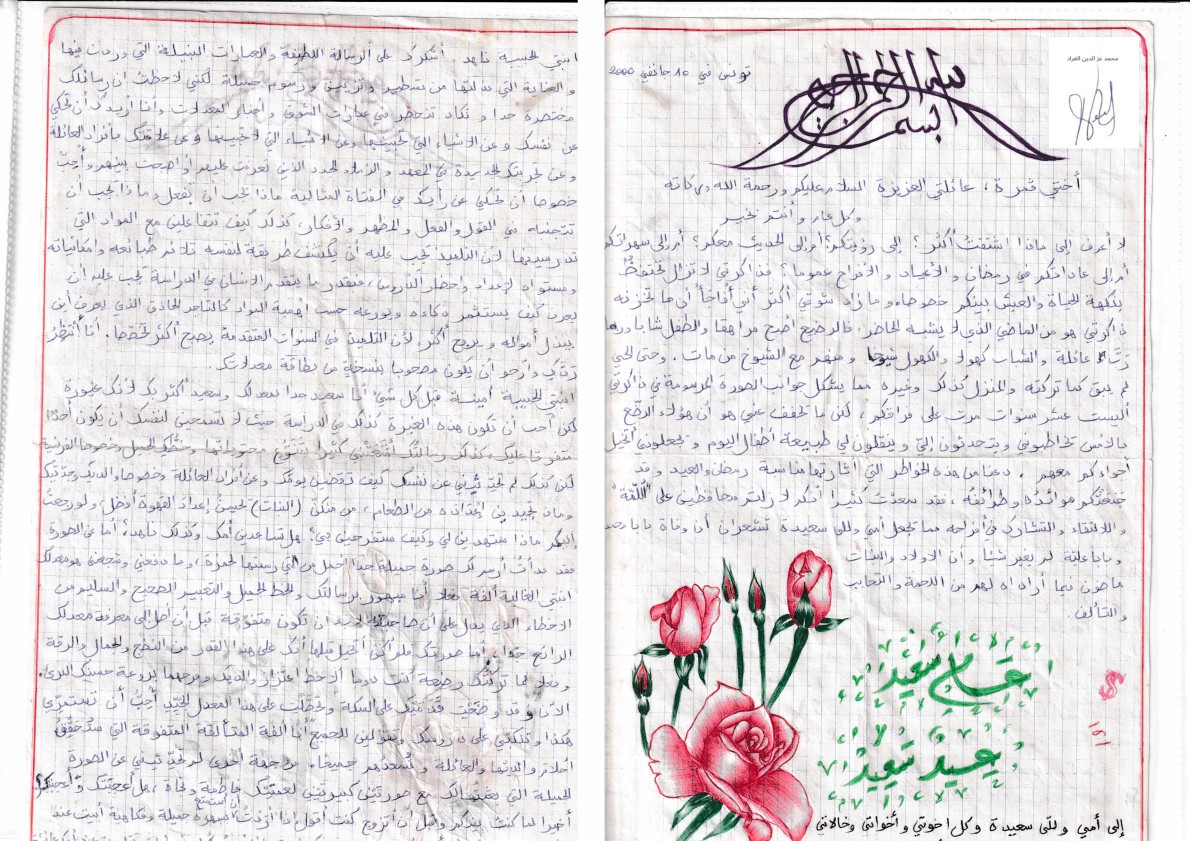 بسم الله الرحمن الرحيم
محمد عز الدين الغراد
تونس في 10 جانفي 2000
أختي قمرة، عائلتي العزيزة السلام عليكم ورحمة الله وبركاته
وكل عام وأنتم بخير
لا أعرف إلى ماذا اشتقت أكثر؟ إلى رؤيتكم؟ أم إلى الحديث معكم؟ أم إلى سهراتكم
أم إلى عاداتكم في رمضان والأعياد والأفراح عموما؟ فذاكرتي لا تزال تحتفظ
بنكهة الحياة والعيش بينكم خصوصا وما زاد شوقي أكثر أني أفاجأ أن ما تخزنه
ذاكرتي هو من الماضي الذي لا يشبه الحاضر. فالرضيع أصبح مراهقا والطفل شابا وربما
ربّ عائلة والشباب كهولا والكهول شيوخا ومنهم مع الشيوخ من مات. وحتى الحي
لم يبق كما تركته والمنزل كذلك وغيره مما يشكل جوانب الصورة المرسومة في ذاكرتي
أليست عشر سنوات مرت على فراقكم، لكن ما يخفف عني هو أن هؤلاء الرضّع
بالأمس يخاطبوني ويتحدثون إليّ وينقلون لي طبيعة أطفال اليوم ويجعلوني أتخيل
أجواءكم معهم. دعنا من هذه الخواطر التي أثارتها مناسبة رمضان والعيد وقد
موائده وطرائفه، فقد سعدت كثيرا أنكم لا زلتم محافظين على "اللّمّة"
والالتقاء والتشارك في أفراحه مما يجعل أمي وللّي سعيدة تشعران أن وفاة بابا
وبابا علية لم يغير شيئا وأن الأولاد والبنات
ماضون فيما أراداه لهم من اللحمة والتحابب
والتآلف.
عام سعيد
عيد سعيد
إلى أمي وللّي سعيدة وكل اخوتي وأخواتي وخالاتي
ابنتي الحبيبة ناهد. أشكرك على الرسالة اللطيفة والعبارات النبيلة التي وردت فيها
والعناية التي نالتها من تسطير وتزيين ورسوم جميلة لكني لاحظت أن رسائلك
مختصرة جدا و تكاد تنحصر في عبارات الشوق وأخبار المعدلات وأنا أريدك أن تحكي
عن نفسك وعن الأشياء التي تحبينها وعن الأشياء التي لا تحبينها وعن علاقتك بأفراد العائلة
وعن تجربتك الجديدة في المعهد والزملاء الجدد الذين تعرفت عليهم وأصبحت بينهم وأحبّ
خصوصا أن تحكي عن رأيك في الفتاة المثالية ماذا يجب أن تفعل وماذا يجب أن
تتجنبه في القول والفعل والمظهر والأفكار، كذلك كيف تتفاعلين مع المواد التي
تدرسينها لأن التلميذ يجب عليه أن يكتشف طريقة لنفسه تلائم طبائعه وإمكانياته
ومستواه لإعداد وإحضار الدروس، فبقدر ما يتقدم الإنسان في الدراسة يجب عليه أن
يعرف كيف يستثمر ذكاءه ويوزعه حسب أهمية المواد كالتاجر الحاذق الذي يعرف أين
يبذل أمواله ويربح أكثر لأن التلميذ في السنوات المتقدمة يصبح أكثر تخصصا. أنا أنتظر
ردّك وأرجو أن يكون مصحوبا بنسخة من بطاقة معدلاتك.
ابنتي الحبيبة أمينة. قبل كل شيء أنا سعيد جدا بمعدلك وسعيد أكثر بك لأنك غيورة
لكن أحب أن تكون هذه الغيرة كذلك في الدراسة حيث لا تسمحين لنفسك أن يكون أحدا
متفوقا عليك، كذلك رسالتك أمتعتني كثيرا بتنوع محتوياتها وخطك الجميل خصوصا الفرنسية
لكن كذلك لم تحدّثيني عن نفسك كيف تقضين يومك وعن أفراد العائلة وخصوصا والديك وجدتيك
وماذا تجيدين في إعداده من الطعام، من منكنّ (البنات) تحسن إعداد القهوة أفضل، ولو رجعت
إليكم ماذا ستهدين لي وكيف ستفرحين بي؟ هل تساعدين أمك وكذلك ناهد، أما عن الصورة
فقد بدأت أرسم لك صورة جميلة جدا أجمل من التي رسمتها لحمزة، وما دفعني وشجعني هو معدلك
ابنتي الغالية ألفة فعلا أنا مبهور برسالتك والخط الجميل والتعبير الصحيح والسليم من
الأخطاء الذي يدل على أن صاحبته لا بد أن تكون متفوقة قبل أن أصل إلى معرفة معدلك
الرائع جدا، أما صورتك فلم أكن أتخيل قبلها أنك على هذا القدر من النضج والجمال والرقة
وفعلا لما تركتك رضيعة كنت دوما ألاحظ اعتزاز والديك وفرحهما بروعة حسنك البريء.
الآن وقد وضعت قدميك على السكة وتحصلت على هذا المعدل الجيّد أحبّ أن تستمرّي
هكذا وتتكلي على دروسك وتبرزين للجميع أنا ألفة المتألقة المتفوقة التي ستحقّق
أحلام والديها والعائلة وتُسعدهم جميعا. من جهة أخرى لم تحدّثيني عن الصورة
الجميلة التي بعثتها لك مع صورتين كبيرتين لعمتيك فاطمة ونجاة، هل أعجبتك وأعجبتكم؟
أخيرا لما كنت بينكم وقبل أن أتزوج كنت أقول إذا أردت أن أستمتع بسهرة جميلة وفكاهية أبيت عند